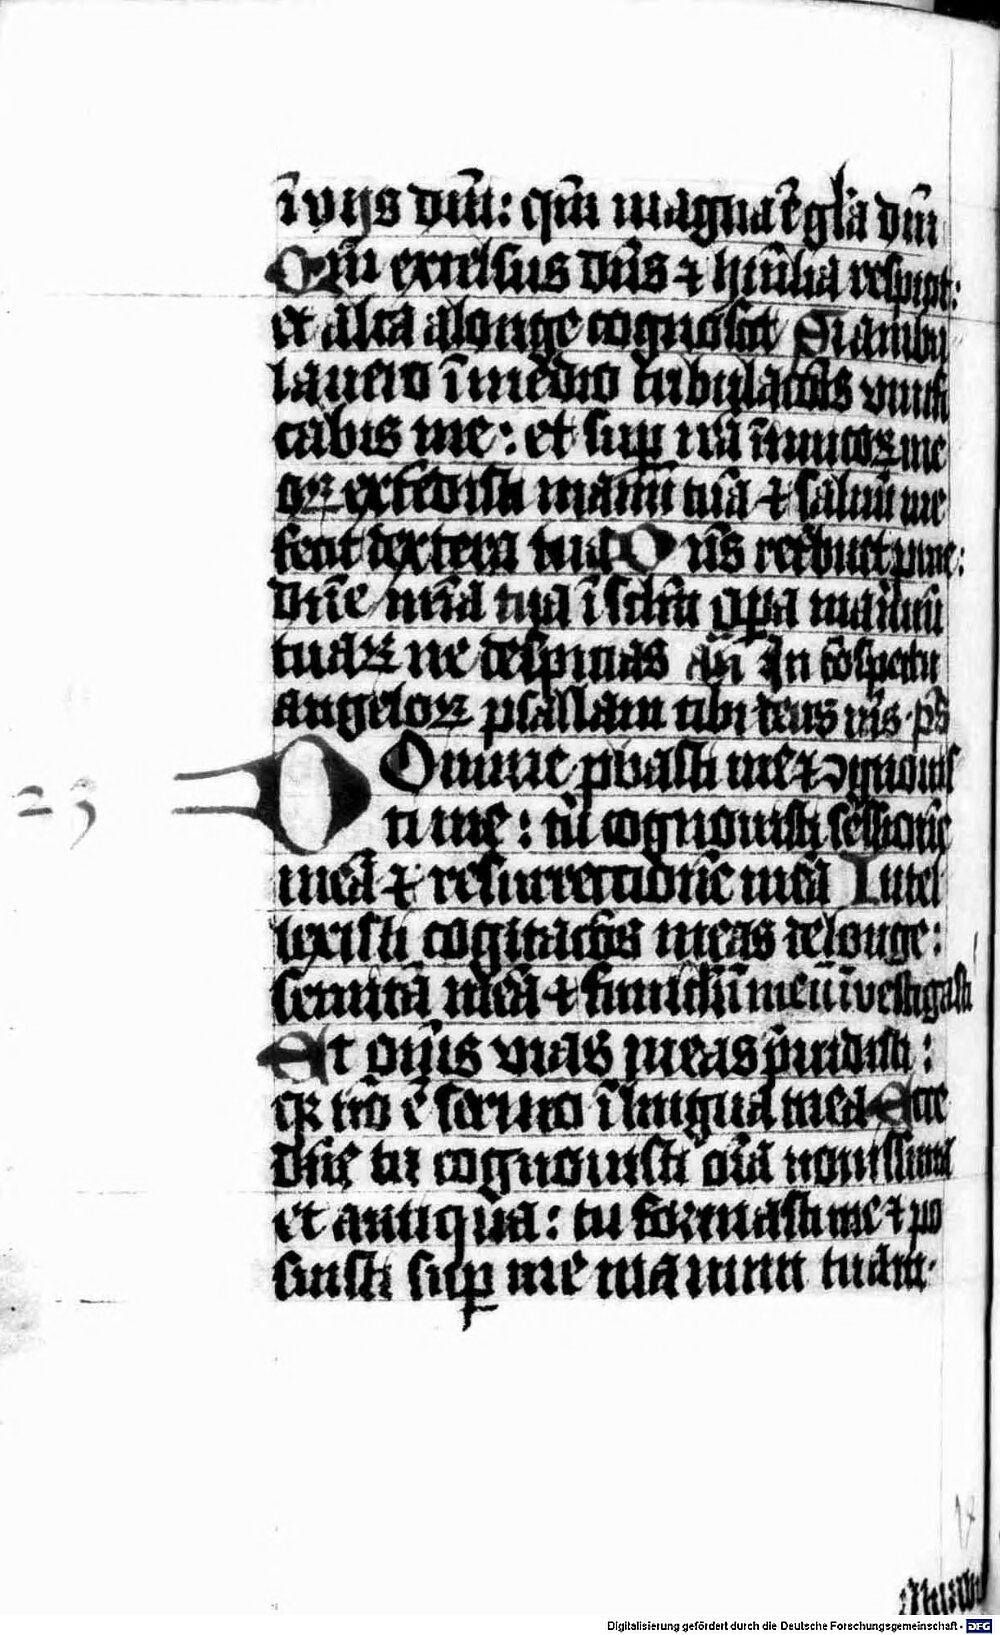 ī vijs dñi: qm̄ magna ē gl̄a dñi
Qm̄ excelsus dñs ⁊ hūilia respic̄it:
et alta alonge cognoscit Si ambu
lauero ī medio tribulac̄ois viuifi
cabis me: et sup irā īmicoꝝ me
oꝝ extēdisti manū tuā ⁊ saluū me
fecit dextera tua Dñs ret̄buet p̄ me:
dñe mīa tua ī sc̄lm opa manuū
tuaꝝ ne despicias añ In cōspectu
angeloꝝ psallam tibi deus ms̄. ps̄
23 Domine ꝓbasti me ⁊ ɔgnouis
ti me: tu cognouisti sessionē
meā ⁊ resurrectionē meā Intel
lexisti cogitac̄oes meas de longe:
semitā meā ⁊ funiclm̄ meū īvestigasti
Et om̄s vias meas p̄uidisti:
qꝛ nō ē sermo ī lingua mea Ecce
dñe tu cognouisti oīa nouissima
et antiqua: tu formasti me ⁊ po
suisti sup me manum tuam.
Digitalisierung gefördert durch die Deutsche Forschungsgemeinschaft - DFG